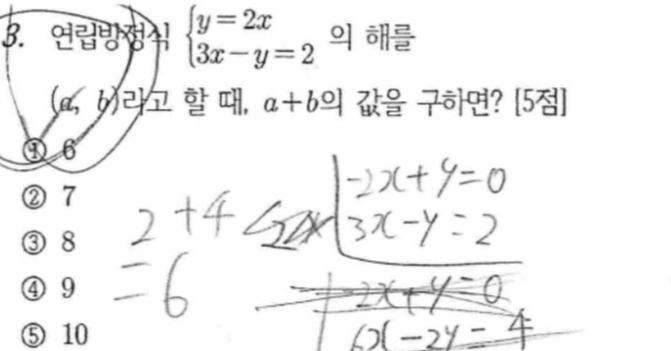 3. 연립방정식 {y=2x
3x−y=2 의 해를
(a, b)라고 할 때, a+b의 값을 구하면? [5점]
① 6
② 7
③ 8
④ 9
⑤ 10
2+4
=6
-2x+y=0
3x-y=2
-2x+y=0
6x-2y=4